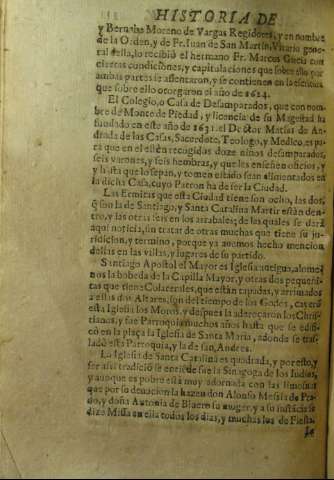 HISTORIA DE
y Bernabe Moreno de Vargas Regidores, y en nombre
de la Orden, y de Fr. Iuan de San Martin, Vicario gene-
ral della, lo recibiò el hermano Fr. Marcos Garcia con
ciertas condiciones, y capitulaciones que sobre ello por
ambas partes se assentaron, y se contienen en la escritura
que sobre ello otorgaron el año de 1624.
El Colegio, o Casa de Desamparados, que con nom-
bre de Monte de Piedad, y licencia de su Magestad ha
fundado en este año de 1631. el Doctor Matias de An-
drada de las Casas, Sacerdote, Teologo, y Medico, es pa-
ra que en el estèn recogidos doze niños desamparados,
seis varones, y seis hembras, y que les enseñen oficios, y
hasta que lo sepan, y tomen estado sean alimentados en
la dicha Casa, cuyo Patron ha de ser la Ciudad.
Las Ermitas que esta Ciudad tiene son ocho, las dos,
q̃ son la de Santiago, y Santa Catalina Martir estàn den-
tro, y las otras seis en los arrabales; de las quales se darà
aqui noticia, sin tratar de otras muchas que tiene su ju-
ridicion, y termino, porque ya auemos hecho mencion
dellas en las villas, y lugares de su partido.
Santiago Apostol el Mayor es Iglesia antigua, alome-
nos la bobeda de la Capilla Mayor, y otras dos pequeñi-
tas que tiene Colaterales, que estàn tapadas, y arrimados
a ellas dos Altares, son del tiempo de los Godos, cayerõ
esta Iglesia los Moros, y despues la adereçaron los Chris-
tianos, y fue Parroquia muchos años hasta que se edifi-
cò en la plaça la Iglesia de Santa Maria, adonde se tras-
ladò esta Parroquia, y la de san Andres.
La Iglesia de Santa Catalina es quadrada, y por esto, y
ser assi tradiciõ se entiẽde fue la Sinagoga de los Iudios,
y aunque es pobre està muy adornada con las limosnas
que por su deuocion la hazen don Alonso Mesia de Pra-
do, y doña Antonia de su muger, y a su instãcia se
dize Missa en ella todos los dias, y muchas los de Fiesta.